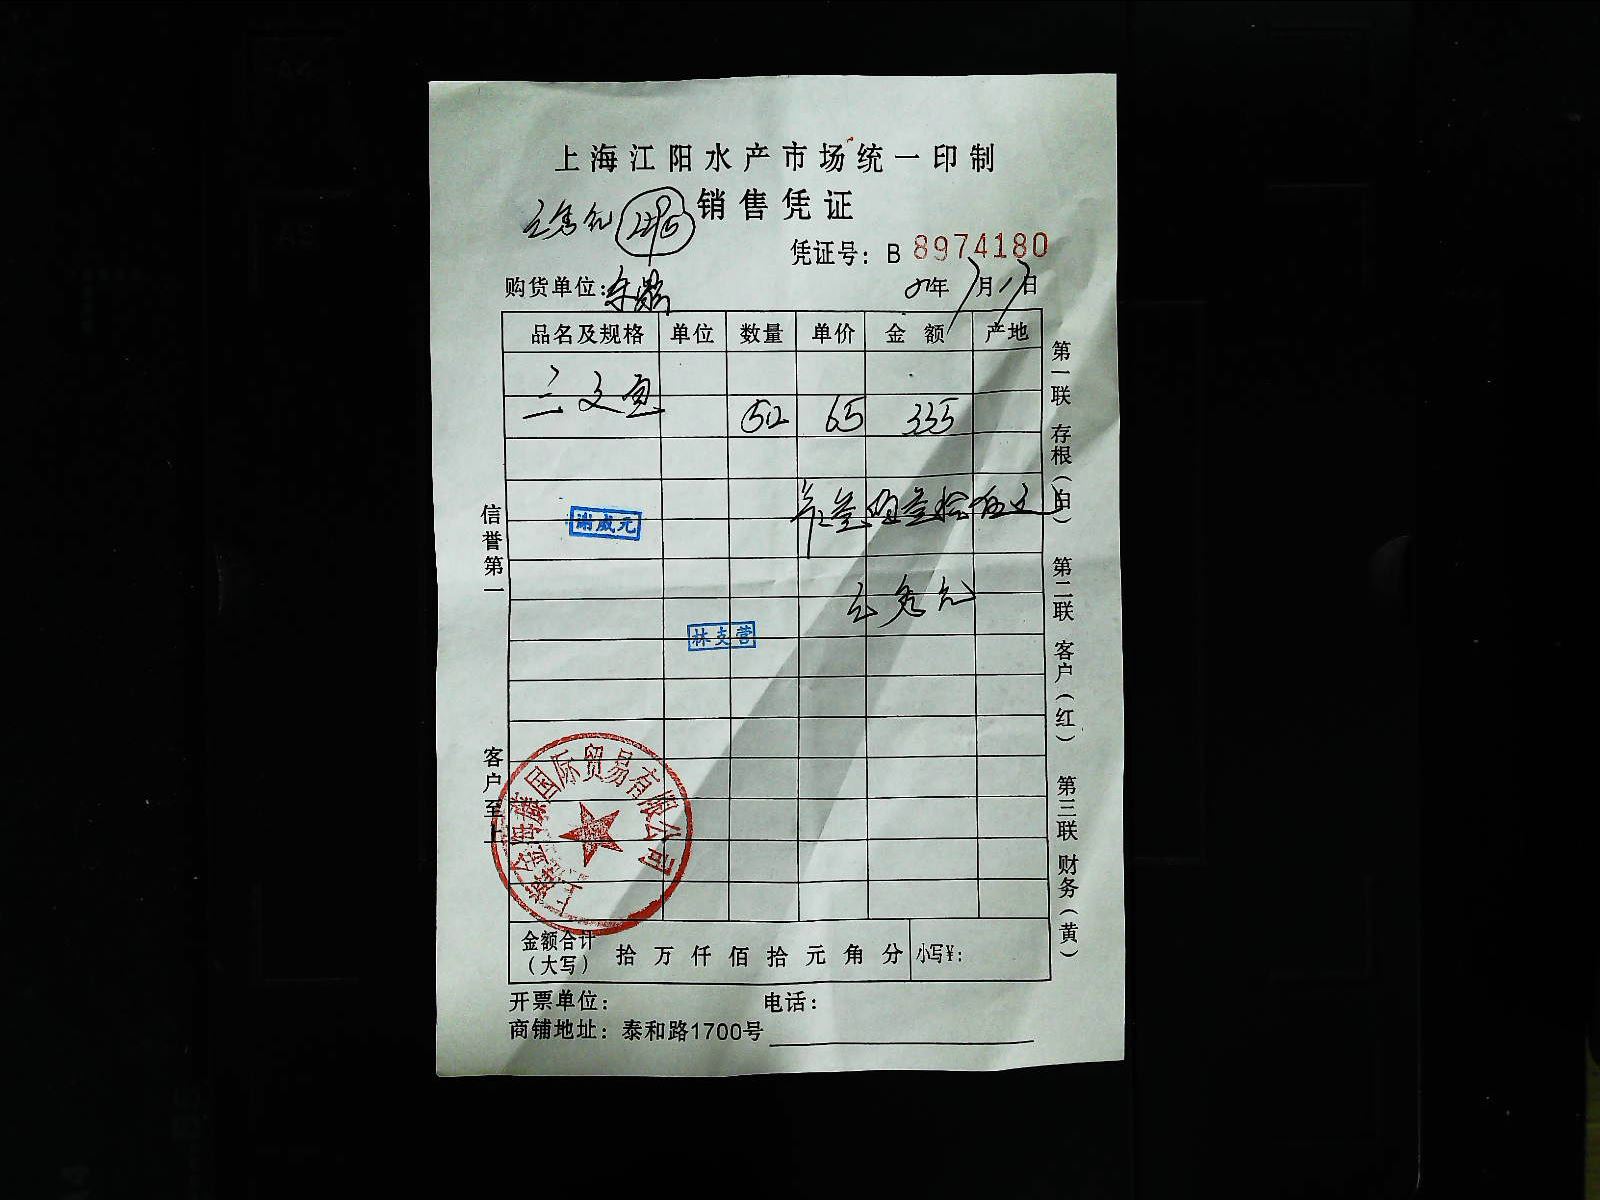 上海江阳水产市场统一印制
销售凭证
凭证号：B 8974180
购货单位：
年 7月17日
品名及规格 单位 数量 单价 金额 产地
三文鱼
65 335
谢威元
林支营
信誉第一
客户至上
第一联 存根（白）
第二联 客户（红）
第三联 财务（黄）
国际贸易有限公司
金额合计（大写） 拾 万 仟 佰 拾 元 角 分 小写¥：
开票单位： 电话：
商铺地址：泰和路1700号